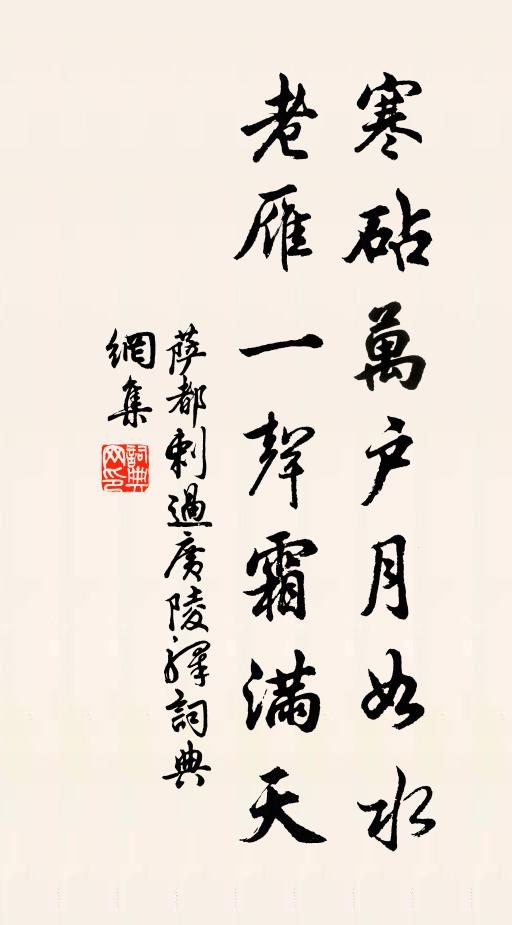 寒砧萬户月如水
老雁一聲霜滿天
薩都剌過廣陵驛詞典
網集
詞典
网印